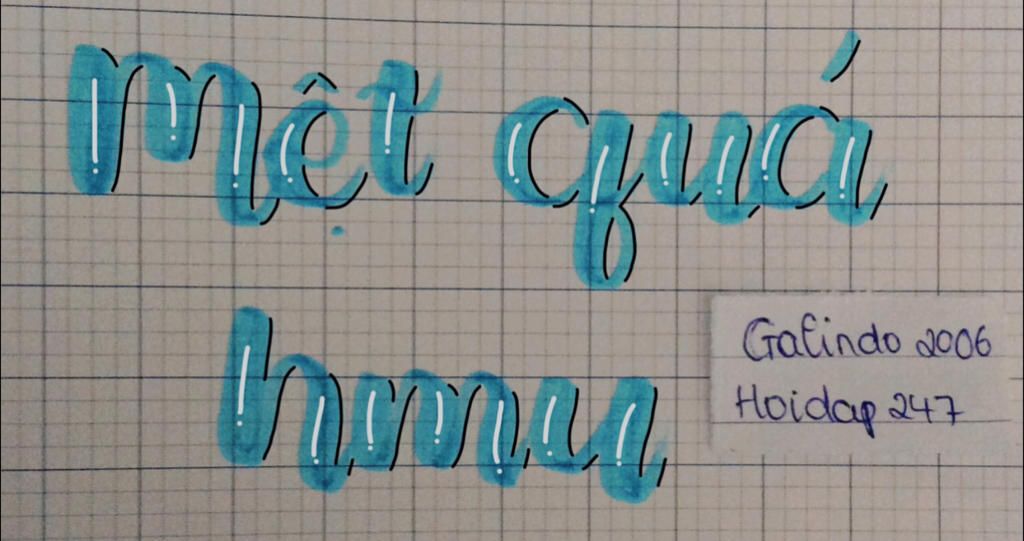 Mệt quá
hmu
Galindo 2006
Hoidap 247